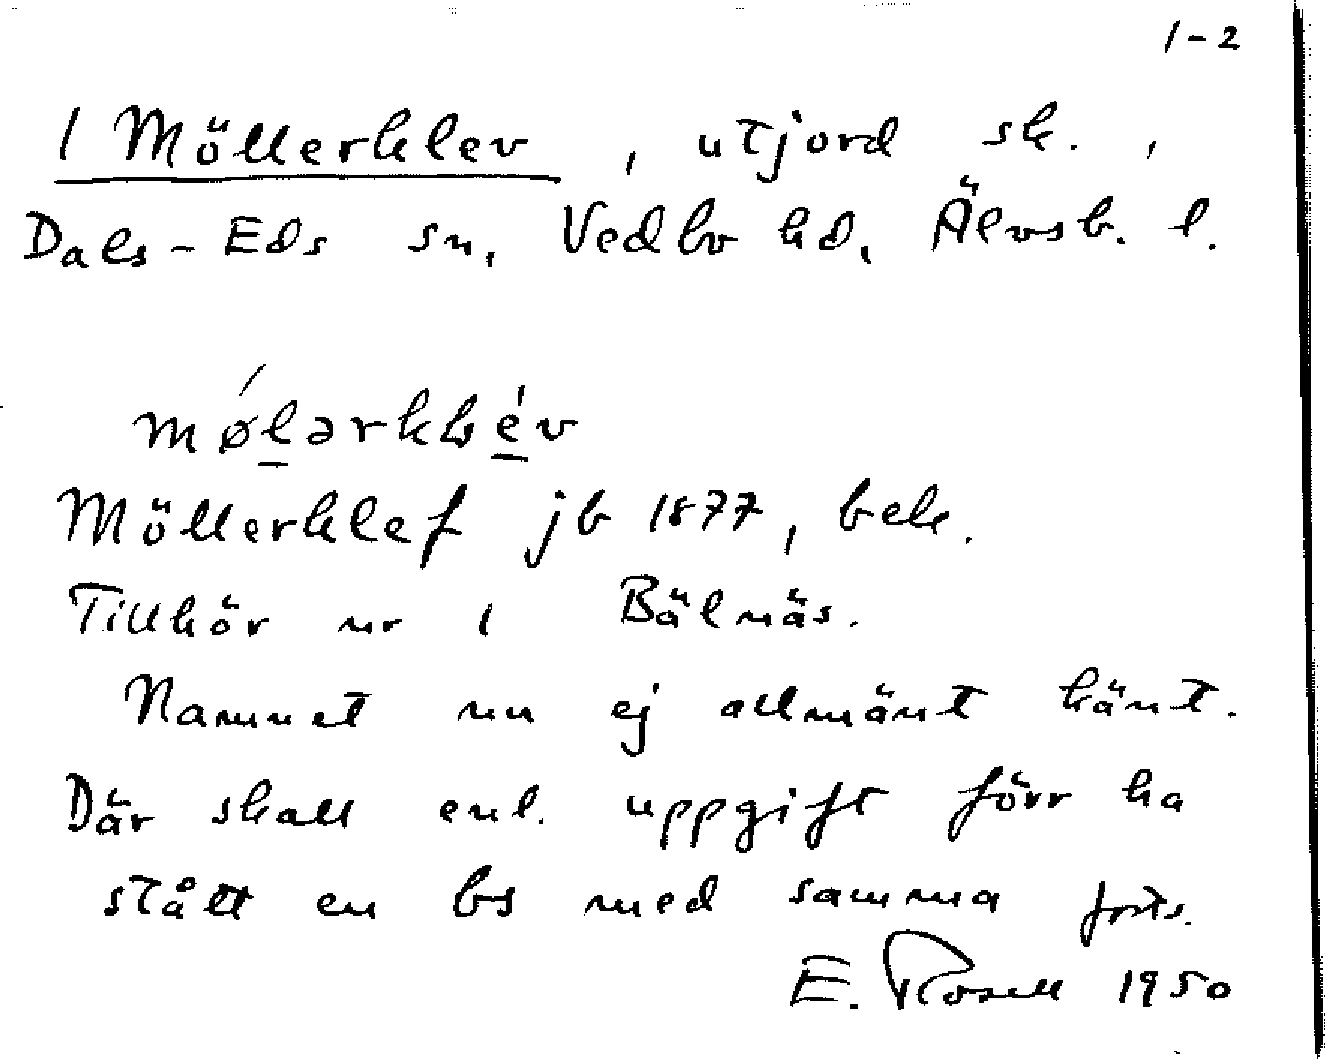 1-2
1 Möllerklev, utjord sk.,
Dals-Eds sn, Vedbo hd, Älvsb. l.
møl̲ərkle̲v
Möllerklef jb 1877, bek.
Tillhör nr 1 Bälnäs.
Namnet nu ej allmänt känt.
Där skall enl. uppgift förr ha
stått en bs med samma forts.
E. Rosell 1950